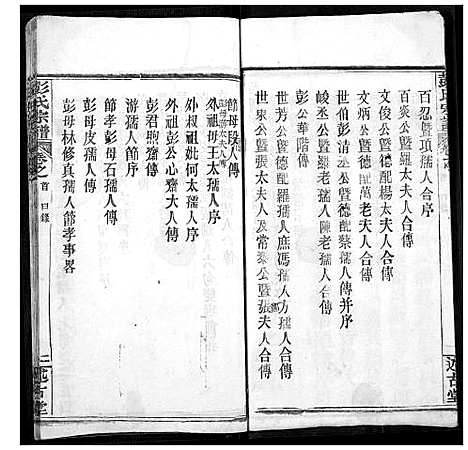 百忍暨項孺人合序
百炎公暨羅太夫人合傳
文俊公暨德配楊太夫人合傳
文炳公暨德配萬老夫人合傳
世伯彭清公暨德配蔡孺人傳并序
峻丞公暨羅老孺人陳老孺人合傳
彭公華階傳
世芳公暨德配羅孺人庶馮孺人方孺人合傳
世棠公暨張太夫人及常棻公暨張夫人合傳
節母段人傳
外祖母王太孺人傳
外叔祖妣何太孺人傳
外祖彭公心齋大人傳
彭君煦齋傳
游序
節孝彭母石孺人傳
彭母皮孺人傳
彭母林修真孺人節孝事畧
彭氏宗譜
卷之首 目錄
二
述古堂
述古堂